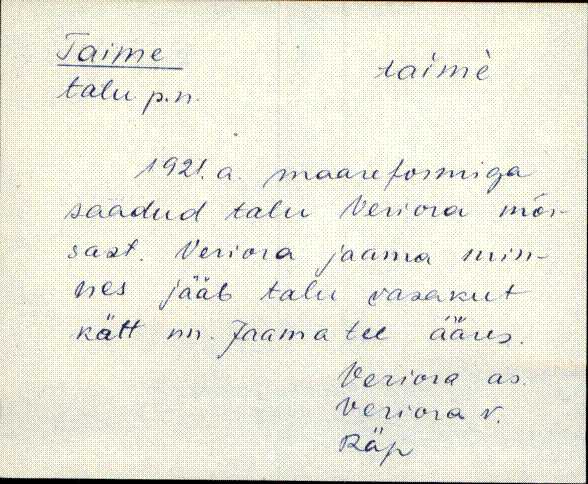 Taime
taimè
talu p.n.
1921.a. maareformiga
saadud talu Veriora mõi-
sast. Veriora jaama min-
nes jääb talu vasakut
kätt nn. Jaama tee ääres.
Veriora as.
Veriora v.
Räp